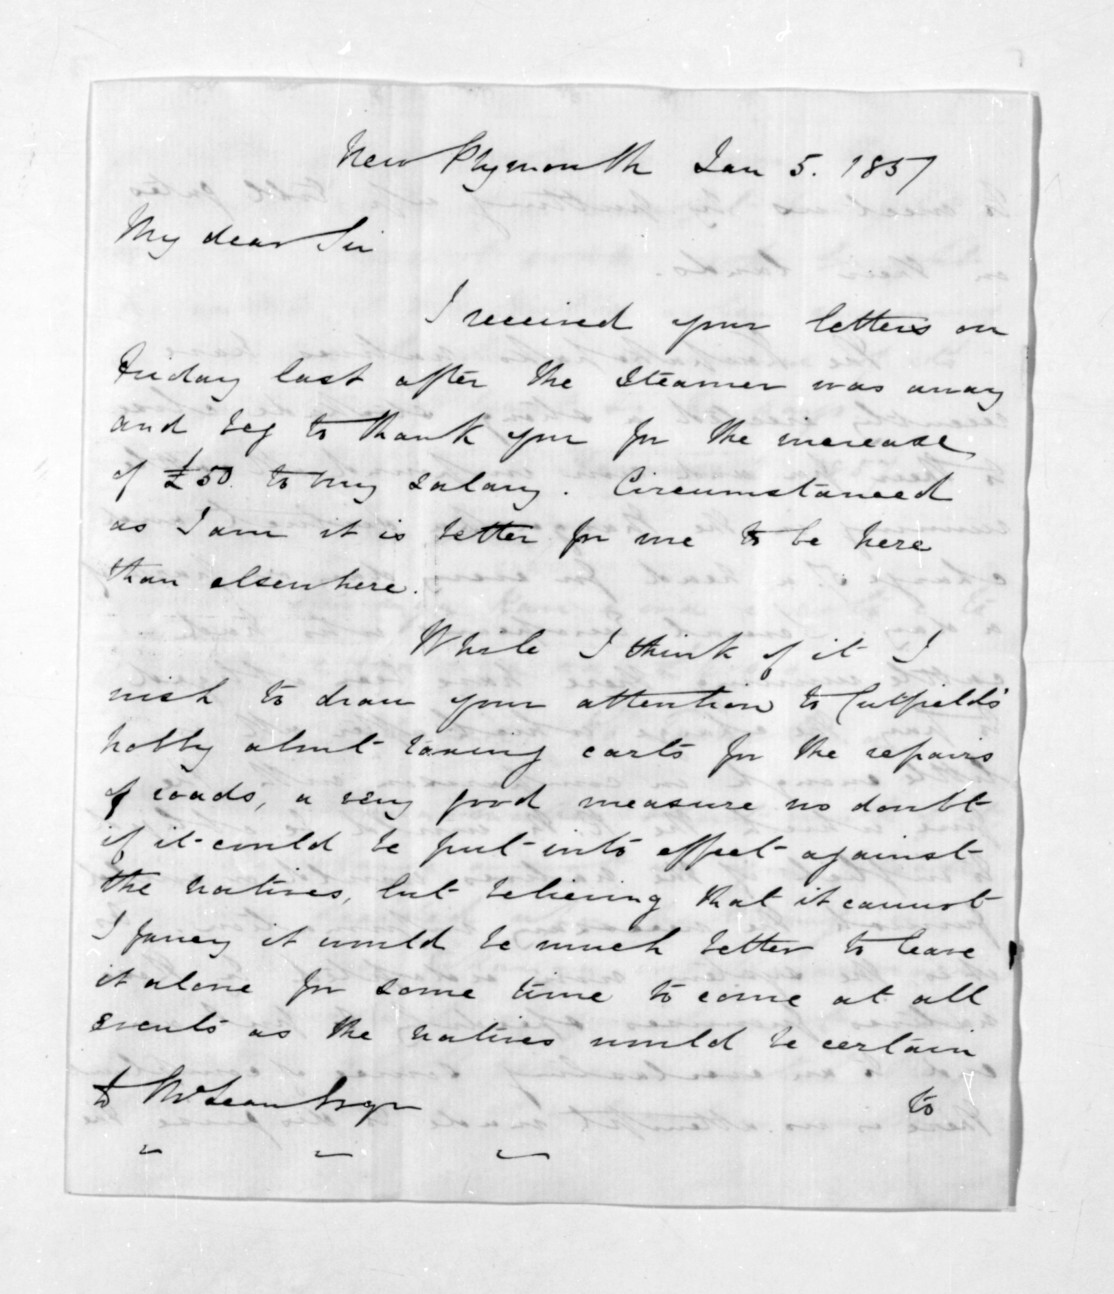 New Plymouth Jan 5. 1857
My dear Sir
I received your letters on
Friday last after the Steamer was away
and beg to thank you for the increase
of £50. to my salary. Circumstanced
as I am it is better for me to be here
than elsewhere.
While I think of it I
wish to draw your attention to Cutfield's
hobby about taxing carts for the repairs
of roads, a very good measure no doubt
if it could be put into effect against
the natives, but believing that it cannot
I fancy it would be much better to leave
it alone for some time to come at all
events as the natives would be certain
to
D McLean Esqr